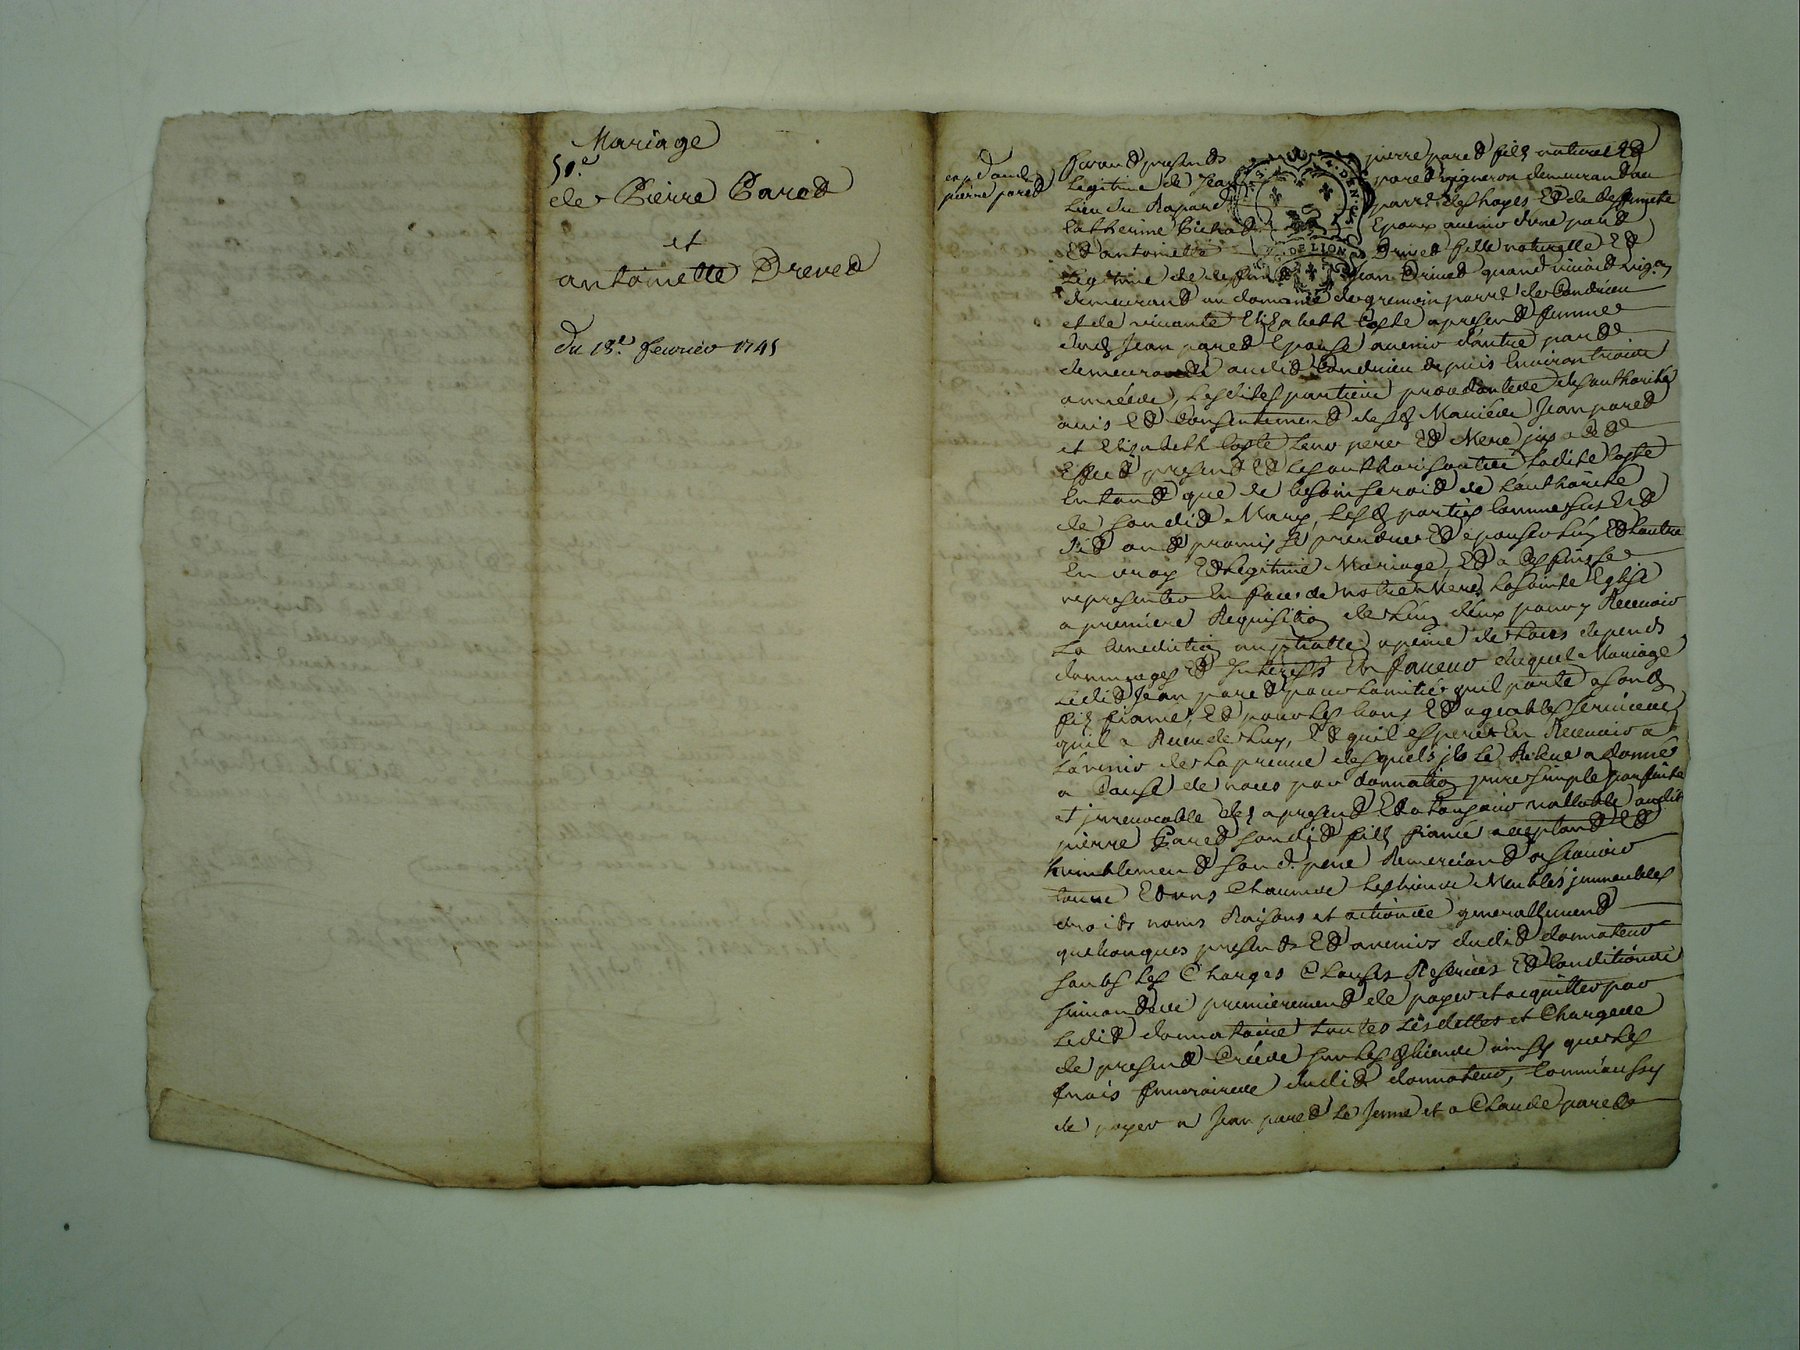 Mariage
50.e
de Pierre Pared
et
antoinette Dreved
du 13.e fevrier 1745
pierre pared
Furend presents pierre pared fils naturel Ed
Legitime de Jean pared vigneron demeurand au
Lieu du parr.e des hayes Ed de deffuncte
Catherine Epoux avenir d'une pard
Ed antoinette Drived fille naturelle Ed
Legitime de deffund Jean Drived quand vivoid vig.on
demeurand au domaine de parr.e de Condrieu
et de vivante Elizabeth Coste a presend femme
dud Jean pared Epouse avenir d'autre pard
demeurande audid Condrieu depuis Environ trois
années, Lesdites parties procedantes des authorité
avis Ed Consentemend desd Mariés Jean pared
et Elizabeth Coste Leur pere Ed Mere
presend Ed Les authorisant Ladite Coste
En tand que de besoin seroid de Lauthorité
de sondid Mary, Lesd parties Comme sus Ed
did ond promis se prendre Ed epouser Lun Ed Lautre
En vray Ed Legitime Mariage, Ed a
representer En face de notre Mere La sainte Eglise
a premiere Requisition de Lun deux pour y Recevoir
La benediction nuptialle a peine de tous depends
dommages Ed Interests En faveur duquel Mariage
Ledid Jean pared pour Lamitié quil porte a sond
fils fiancé, Ed pour Les bons Ed agreables services
quil a Receu de Luy, Ed quil espere En Recevoir a
Lavenir de La preuve desquels il Le Releve a donné
a Cause de noces par donnation pure simple parfaite
et irrevocable des a presend Ed a toujours vallable audit
pierre Pared sondid fils fiancé acceptand Ed
humblemend sond. pere Remerciand a scavoir
tous Ed uns Chacuns Les biens Meubles immeubles
droits noms Raisons et actions generallemend
quelconques presents Ed avenirs dudid donnateur
soubs Les Charges Clauses Reserves Ed Conditions
suivandes premieremend de payer et acquitter par
Ledid donnataire toutes Les dettes et Charges
de presend Créés sur Lesd biens ainsy que Les
frais funeraires dudid donnateur, Comme aussy
de payer a Jean pared Le Jeune et a Claude pared
DE LION